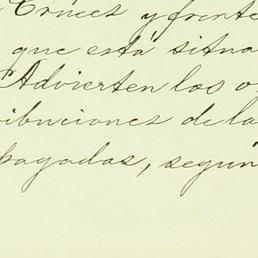 Cruces y frente
que está situa
Advierten los o
ibuciones de la
pagadas, según